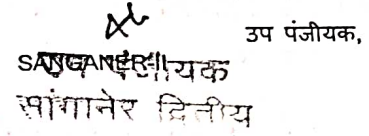 उप पंजीयक,
SANGANER-II
उप पंजीयक
सांगानेर द्वितीय